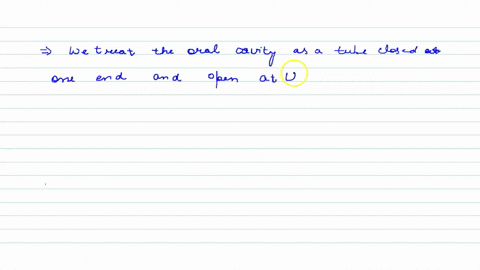 ⇒ We treat the oral cavity as a tube closed at
one end and open at U